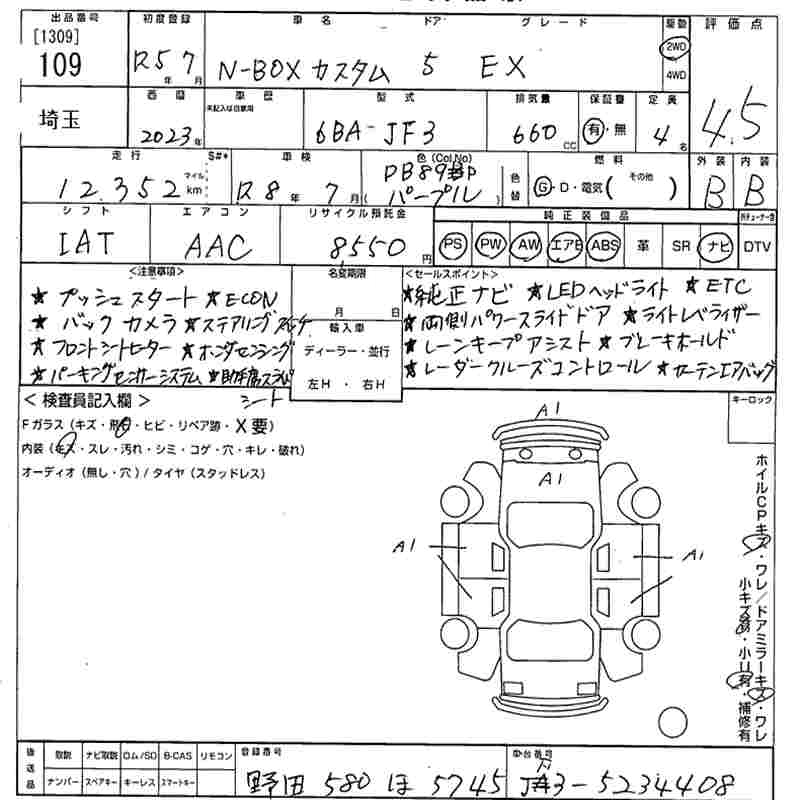 出品番号 初度登録 車名 ドア グレード 駆動 評価点
[1309]
109 R5 年 7 月 N-BOX カスタム 5 EX 2WD 4WD 4.5
埼玉 西暦 車歴 型式 排気量 保証書 定員
未記入は自家用
2023年 6BA-JF3 660 CC 有・無 4名
走行 S#* 車検 色(Col,No) 色替 燃料 外装 内装
12,352 マイル km R8年 7月 ( パープル ) G・D・電気( その他 ) B B
シフト エアコン リサイクル預託金 純正装備品
IAT AAC 8550円 PS PW AW エアB ABS 革 SR ナビ DTV
<注意事項> 名変期限 <セールスポイント>
★プッシュスタート ★ECON 月 日 ★純正ナビ ★LEDヘッドライト ★ETC
★バックカメラ ★ステアリングスイッチ 輸入車 ★両側パワースライドドア ★ライトレベライザー
★フロントシートヒーター ★ホンダセンシング ディーラー・並行 ★レーンキープアシスト ★ブレーキホールド
★パーキングセンサーシステム ★助手席スライド 左H・右H ★レーダークルーズコントロール ★カーテンエアバッグ
シート
<検査員記入欄> キーロック
Fガラス(キズ・飛石・ヒビ・リペア跡・X要)
内装(キズ・スレ・汚れ・シミ・コゲ・穴・キレ・破れ)
オーディオ(無し・穴)/タイヤ(スタッドレス)
A1
A1
A1 A1
ホイルCPキズ・ワレ/ドアミラーキズ・ワレ
小キズ有・小U有・補修有
後送品 取説 ナビ取説 ロム/SD B-CAS リモコン 登録番号 車台番号
ナンバー スペアキー キーレス スマートキー 野田 580 ほ 5745 JF3-5234408